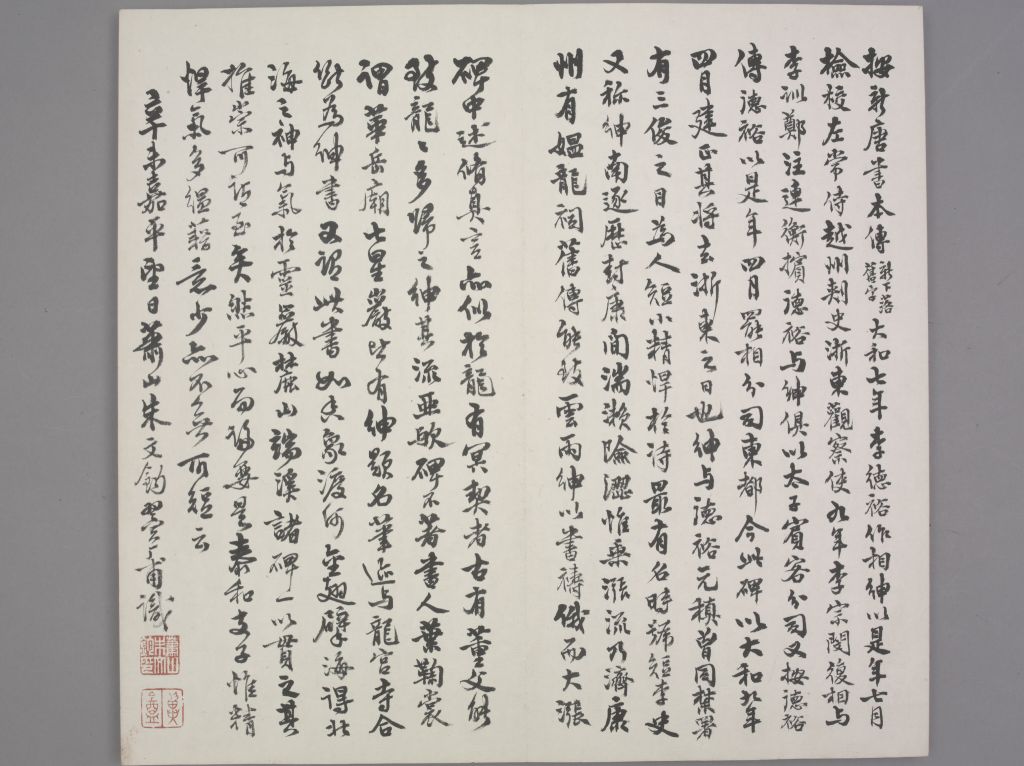 按新唐書本傳新下落舊字大和七年李德裕作相紳以是年七月
檢校左常侍越州刺史浙東觀察使九年李宗閔復相与
李訓鄭注連衡擯德裕与紳俱以太子賓客分司又按德裕
傳德裕以是年四月罷相分司東都今此碑以大和九年
四月建正其将去浙東之日也紳与德裕元稹曾同禁署
有三俊之目為人短小精悍於詩最有名時號短李史
又称紳南逐歷封康間湍瀨險澀惟乘漲流乃濟康
州有媼龍祠舊傳能致雲雨紳以書禱俄而大漲
碑中述脩負言亦似於龍有冥契者古有董父能
豢龍〻多歸之紳其流亞歟碑不著書人葉鞠裳
謂華岳廟七星巖皆有紳題名筆迹与龍宮寺合
斷為紳書又謂此書如香象渡河金翅擘海得北
海之神与氣於靈巖麓山端溪諸碑一以貫之其
推崇可謂至矣然平心而論要是泰和支子惟精
悍氣多緼藉意少亦不無可短云
辛未嘉平望日蕭山朱文鈞翼盦甫識
蕭山朱文鈞印
翼盦